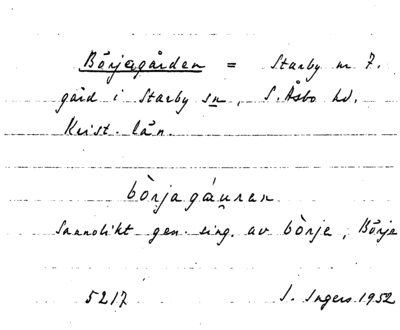 Börjagården = Starby nr 7.
gård i Starby sn, S. Åsbo hd.
Krist. län.
bòrjagáu̯ran
Sannolikt gen. sing. av bòrje, Börje
5217 I. Ingers 1952